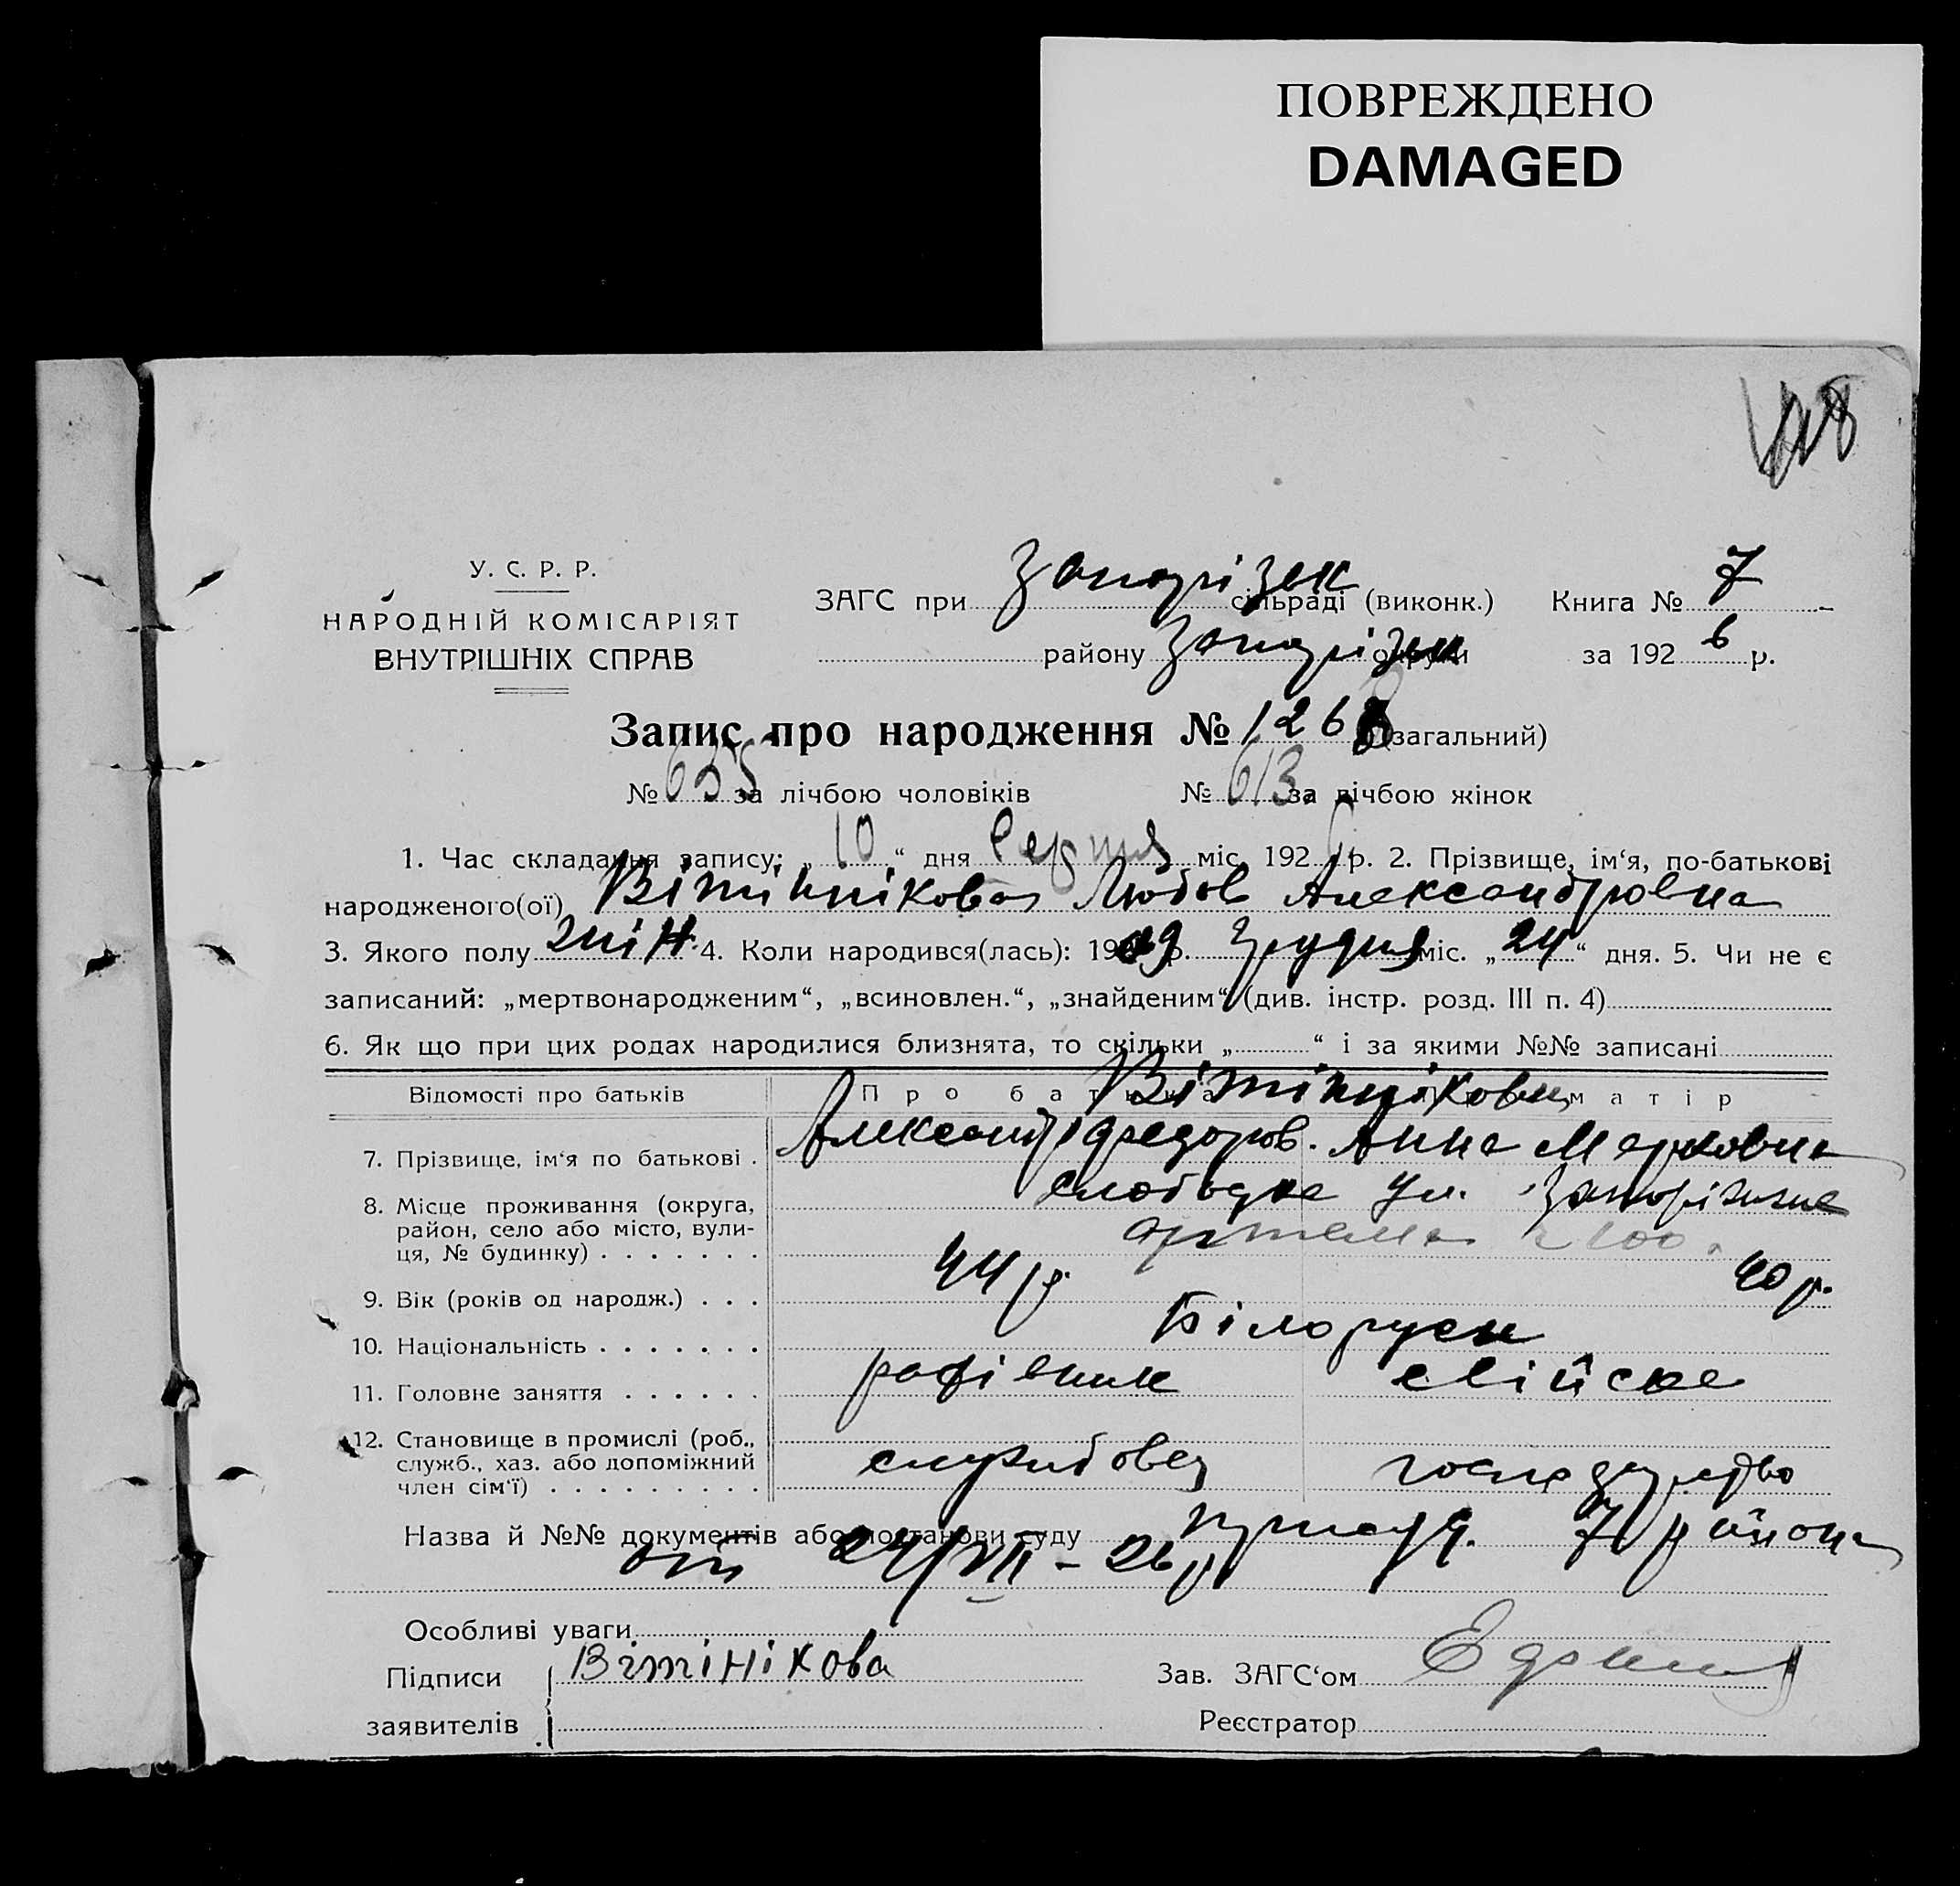 ПОВРЕЖДЕНО
DAMAGED
У. С. Р. Р.
НАРОДНІЙ КОМІСАРІЯТ
ВНУТРІШНІХ СПРАВ
ЗАГС при Запорізьк сільраді (виконк.) Книга № 7
району Запорізьк округи за 1926 р.
Запис про народження № 1268 (загальний)
№ 655 за лічбою чоловіків № 613 за лічбою жінок
1. Час складання запису: „10“ дня Серпня міс. 1926 р. 2. Прізвище, ім‘я, по-батькові
народженого(ої) Вітіннікова Любов Александровна
3. Якого полу жін. 4. Коли народився(лась): 1909 р. Грудня міс. „24“ дня. 5. Чи не є
записаний: „мертвонародженим“, „всиновлен.“, „знайденим“ (див. інстр. розд. III п. 4)
6. Як що при цих родах народилися близнята, то скільки „ “ і за якими №№ записані
Відомості про батьків Про батька Про матір
Вітінніковы
7. Прізвище, ім‘я по батькові . Александр Федоров. Анна Марковна
8. Місце проживання (округа, район, село або місто, вулиця, № будинку) Слободка ул. Запоріжже
Артема 100.
9. Вік (років од народж.) . . . 44 р. 40 р.
10. Національність . . . . . . . Білоруси
11. Головне заняття . . . . . . робівник свійске
12. Становище в промислі (роб., служб., хаз. або допоміжний член сім‘ї) . . . . . . . . . службовец господарство
Назва й №№ документів або постанови суду 7 района
от 24/VII - 26 р.
Особливі уваги
Підписи Вітінікова Зав. ЗАГС‘ом
заявителів Реєстратор